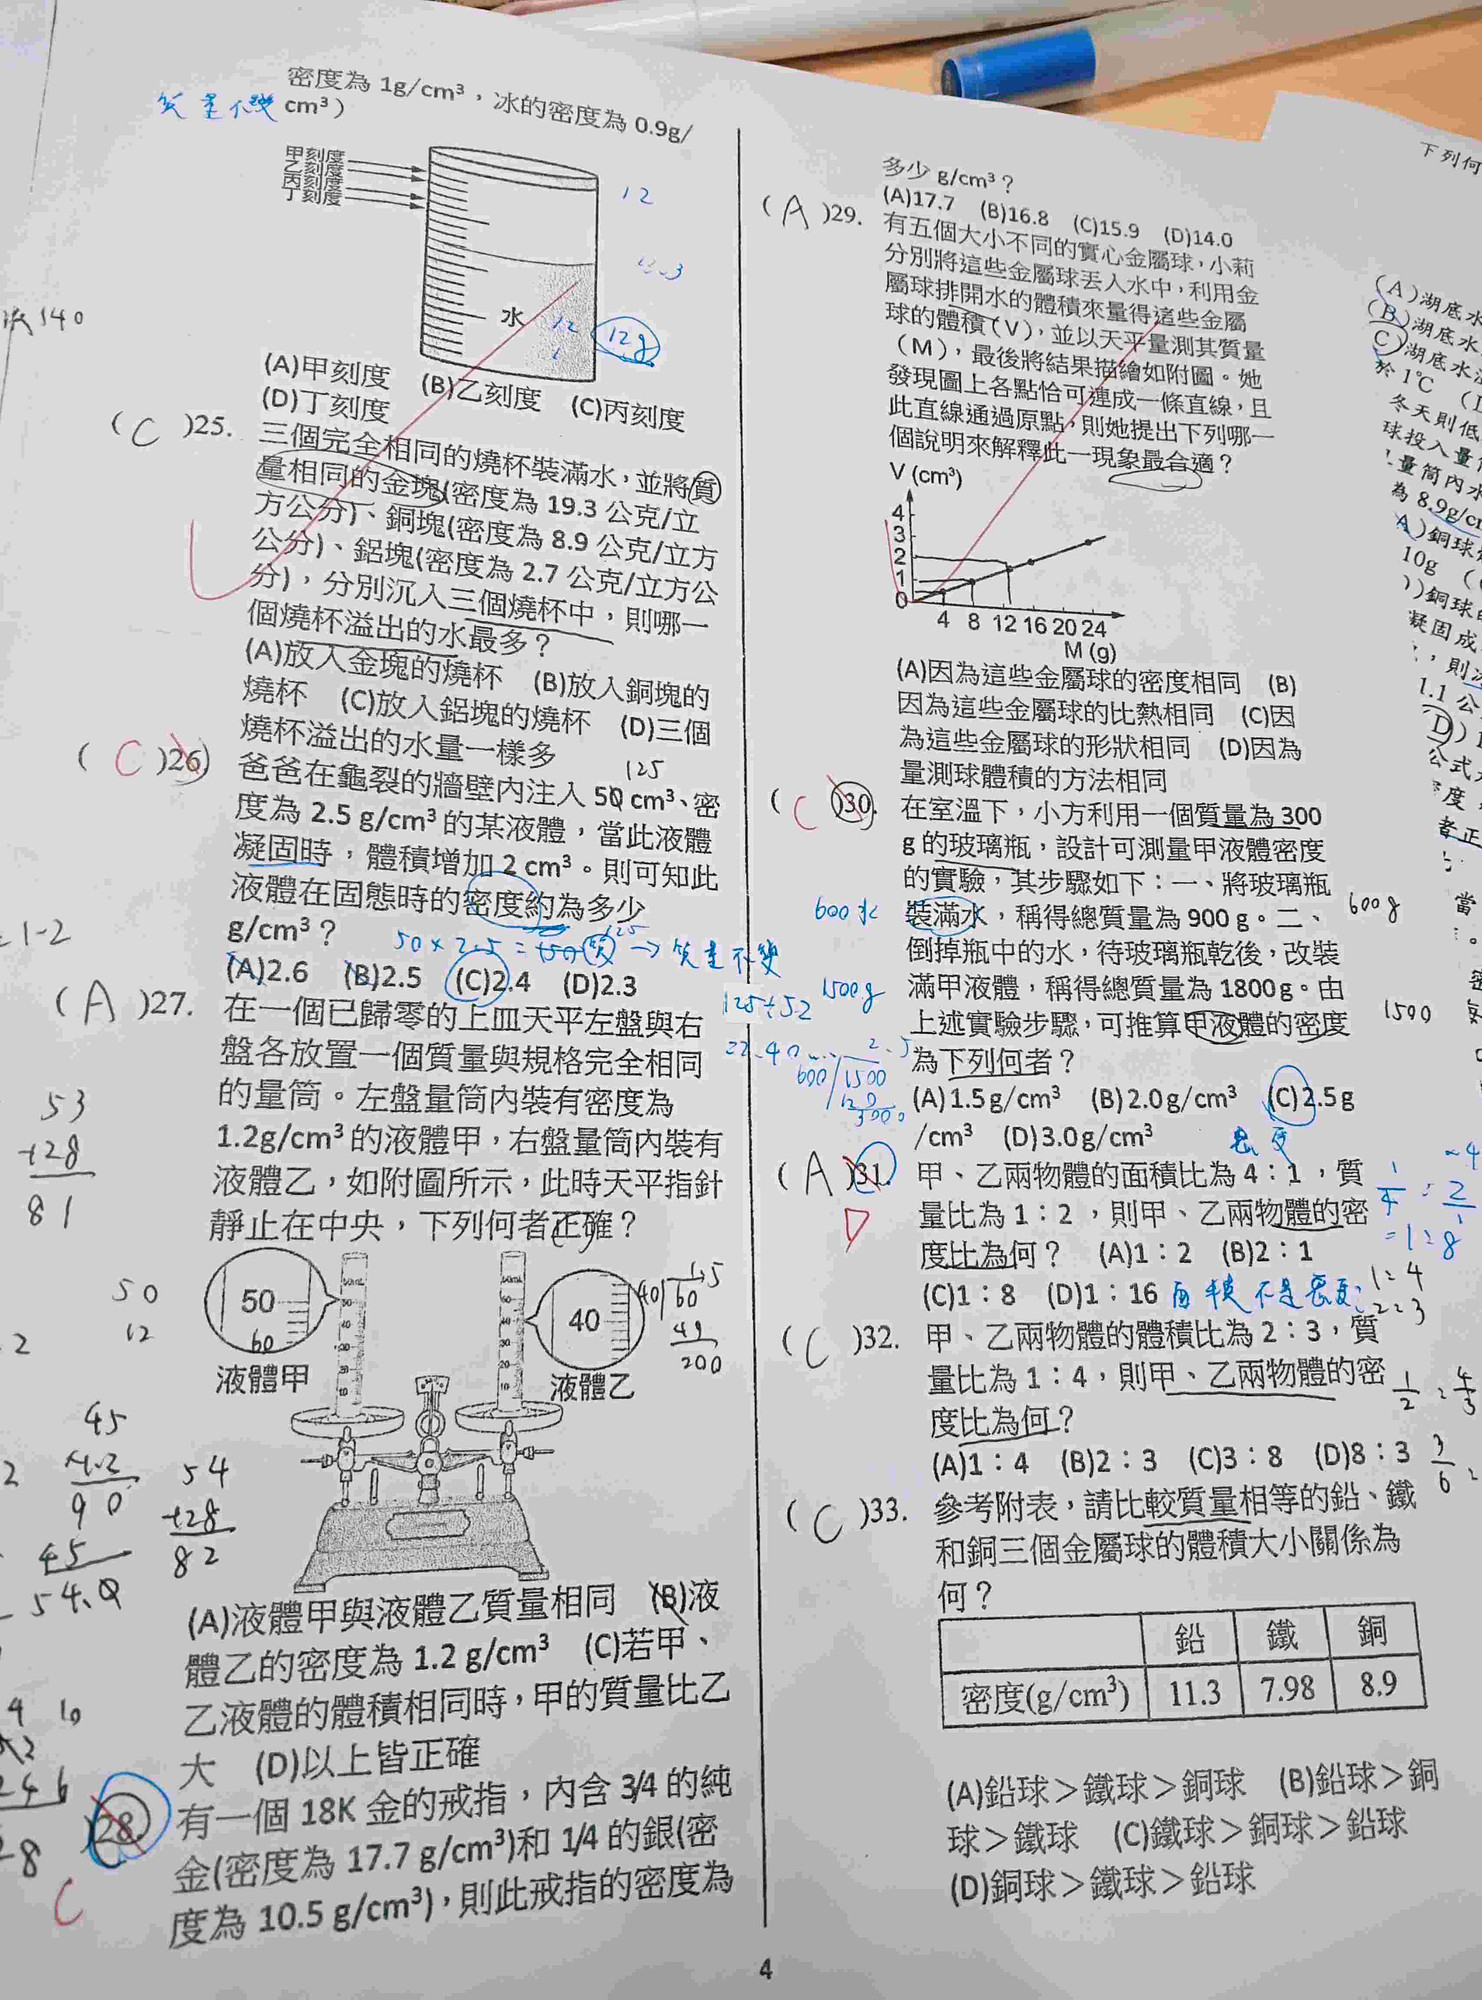 密度為 1g/cm³，冰的密度為 0.9g/
質量不變 cm³）
甲刻度
乙刻度
丙刻度
丁刻度
水
12
12g
(A)甲刻度 (B)乙刻度 (C)丙刻度
(D)丁刻度
( C )25. 三個完全相同的燒杯裝滿水，並將質
量相同的金塊(密度為 19.3 公克/立
方公分)、銅塊(密度為 8.9 公克/立方
公分)、鋁塊(密度為 2.7 公克/立方公
分)，分別沉入三個燒杯中，則哪一
個燒杯溢出的水最多？
(A)放入金塊的燒杯 (B)放入銅塊的
燒杯 (C)放入鋁塊的燒杯 (D)三個
燒杯溢出的水量一樣多
125
( C )26. 爸爸在龜裂的牆壁內注入 50 cm³、密
度為 2.5 g/cm³ 的某液體，當此液體
凝固時，體積增加 2 cm³。則可知此
液體在固態時的密度約為多少
g/cm³？
50×2.5=150 質 125 → 質量不變
(A)2.6 (B)2.5 (C)2.4 (D)2.3
125÷52
( A )27. 在一個已歸零的上皿天平左盤與右
盤各放置一個質量與規格完全相同
的量筒。左盤量筒內裝有密度為
1.2g/cm³ 的液體甲，右盤量筒內裝有
液體乙，如附圖所示，此時天平指針
靜止在中央，下列何者正確？
50
60
液體甲
40
液體乙
(A)液體甲與液體乙質量相同 (B)液
體乙的密度為 1.2 g/cm³ (C)若甲、
乙液體的體積相同時，甲的質量比乙
大 (D)以上皆正確
28. 有一個 18K 金的戒指，內含 3/4 的純
金(密度為 17.7 g/cm³)和 1/4 的銀(密
度為 10.5 g/cm³)，則此戒指的密度為
C
53
+28
81
50
12
45
90
45
54.0
54
+28
82
多少 g/cm³？
(A)17.7 (B)16.8 (C)15.9 (D)14.0
( A )29. 有五個大小不同的實心金屬球，小莉
分別將這些金屬球丟入水中，利用金
屬球排開水的體積來量得這些金屬
球的體積（V），並以天平量測其質量
（M），最後將結果描繪如附圖。她
發現圖上各點恰可連成一條直線，且
此直線通過原點，則她提出下列哪一
個說明來解釋此一現象最合適？
V (cm³)
4
3
2
1
0
4 8 12 16 20 24
M (g)
(A)因為這些金屬球的密度相同 (B)
因為這些金屬球的比熱相同 (C)因
為這些金屬球的形狀相同 (D)因為
量測球體積的方法相同
( C )30. 在室溫下，小方利用一個質量為 300
g 的玻璃瓶，設計可測量甲液體密度
的實驗，其步驟如下：一、將玻璃瓶
600水 裝滿水，稱得總質量為 900 g。二、 600g
倒掉瓶中的水，待玻璃瓶乾後，改裝
1500g 滿甲液體，稱得總質量為 1800g。由
上述實驗步驟，可推算甲液體的密度 1500
為下列何者？
(A)1.5g/cm³ (B)2.0g/cm³ (C)2.5g
/cm³ (D)3.0g/cm³
密度
( A )31. 甲、乙兩物體的面積比為 4：1，質
D 量比為 1：2，則甲、乙兩物體的密
度比為何？ (A)1：2 (B)2：1
(C)1：8 (D)1：16 面積不是密度
( C )32. 甲、乙兩物體的體積比為 2：3，質
量比為 1：4，則甲、乙兩物體的密
度比為何？
(A)1：4 (B)2：3 (C)3：8 (D)8：3
( C )33. 參考附表，請比較質量相等的鉛、鐵
和銅三個金屬球的體積大小關係為
何？
鉛 鐵 銅
密度(g/cm³) 11.3 7.98 8.9
(A)鉛球＞鐵球＞銅球 (B)鉛球＞銅
球＞鐵球 (C)鐵球＞銅球＞鉛球
(D)銅球＞鐵球＞鉛球
下列何
(A)湖底水
(B)湖底水
(C)湖底水
於 1℃
冬天則低
球投入量
量筒內水
為 8.9g/c
)銅球
10g
)銅球
凝固成
，則
1.1 公
(D)
公式
度
者正
當
4